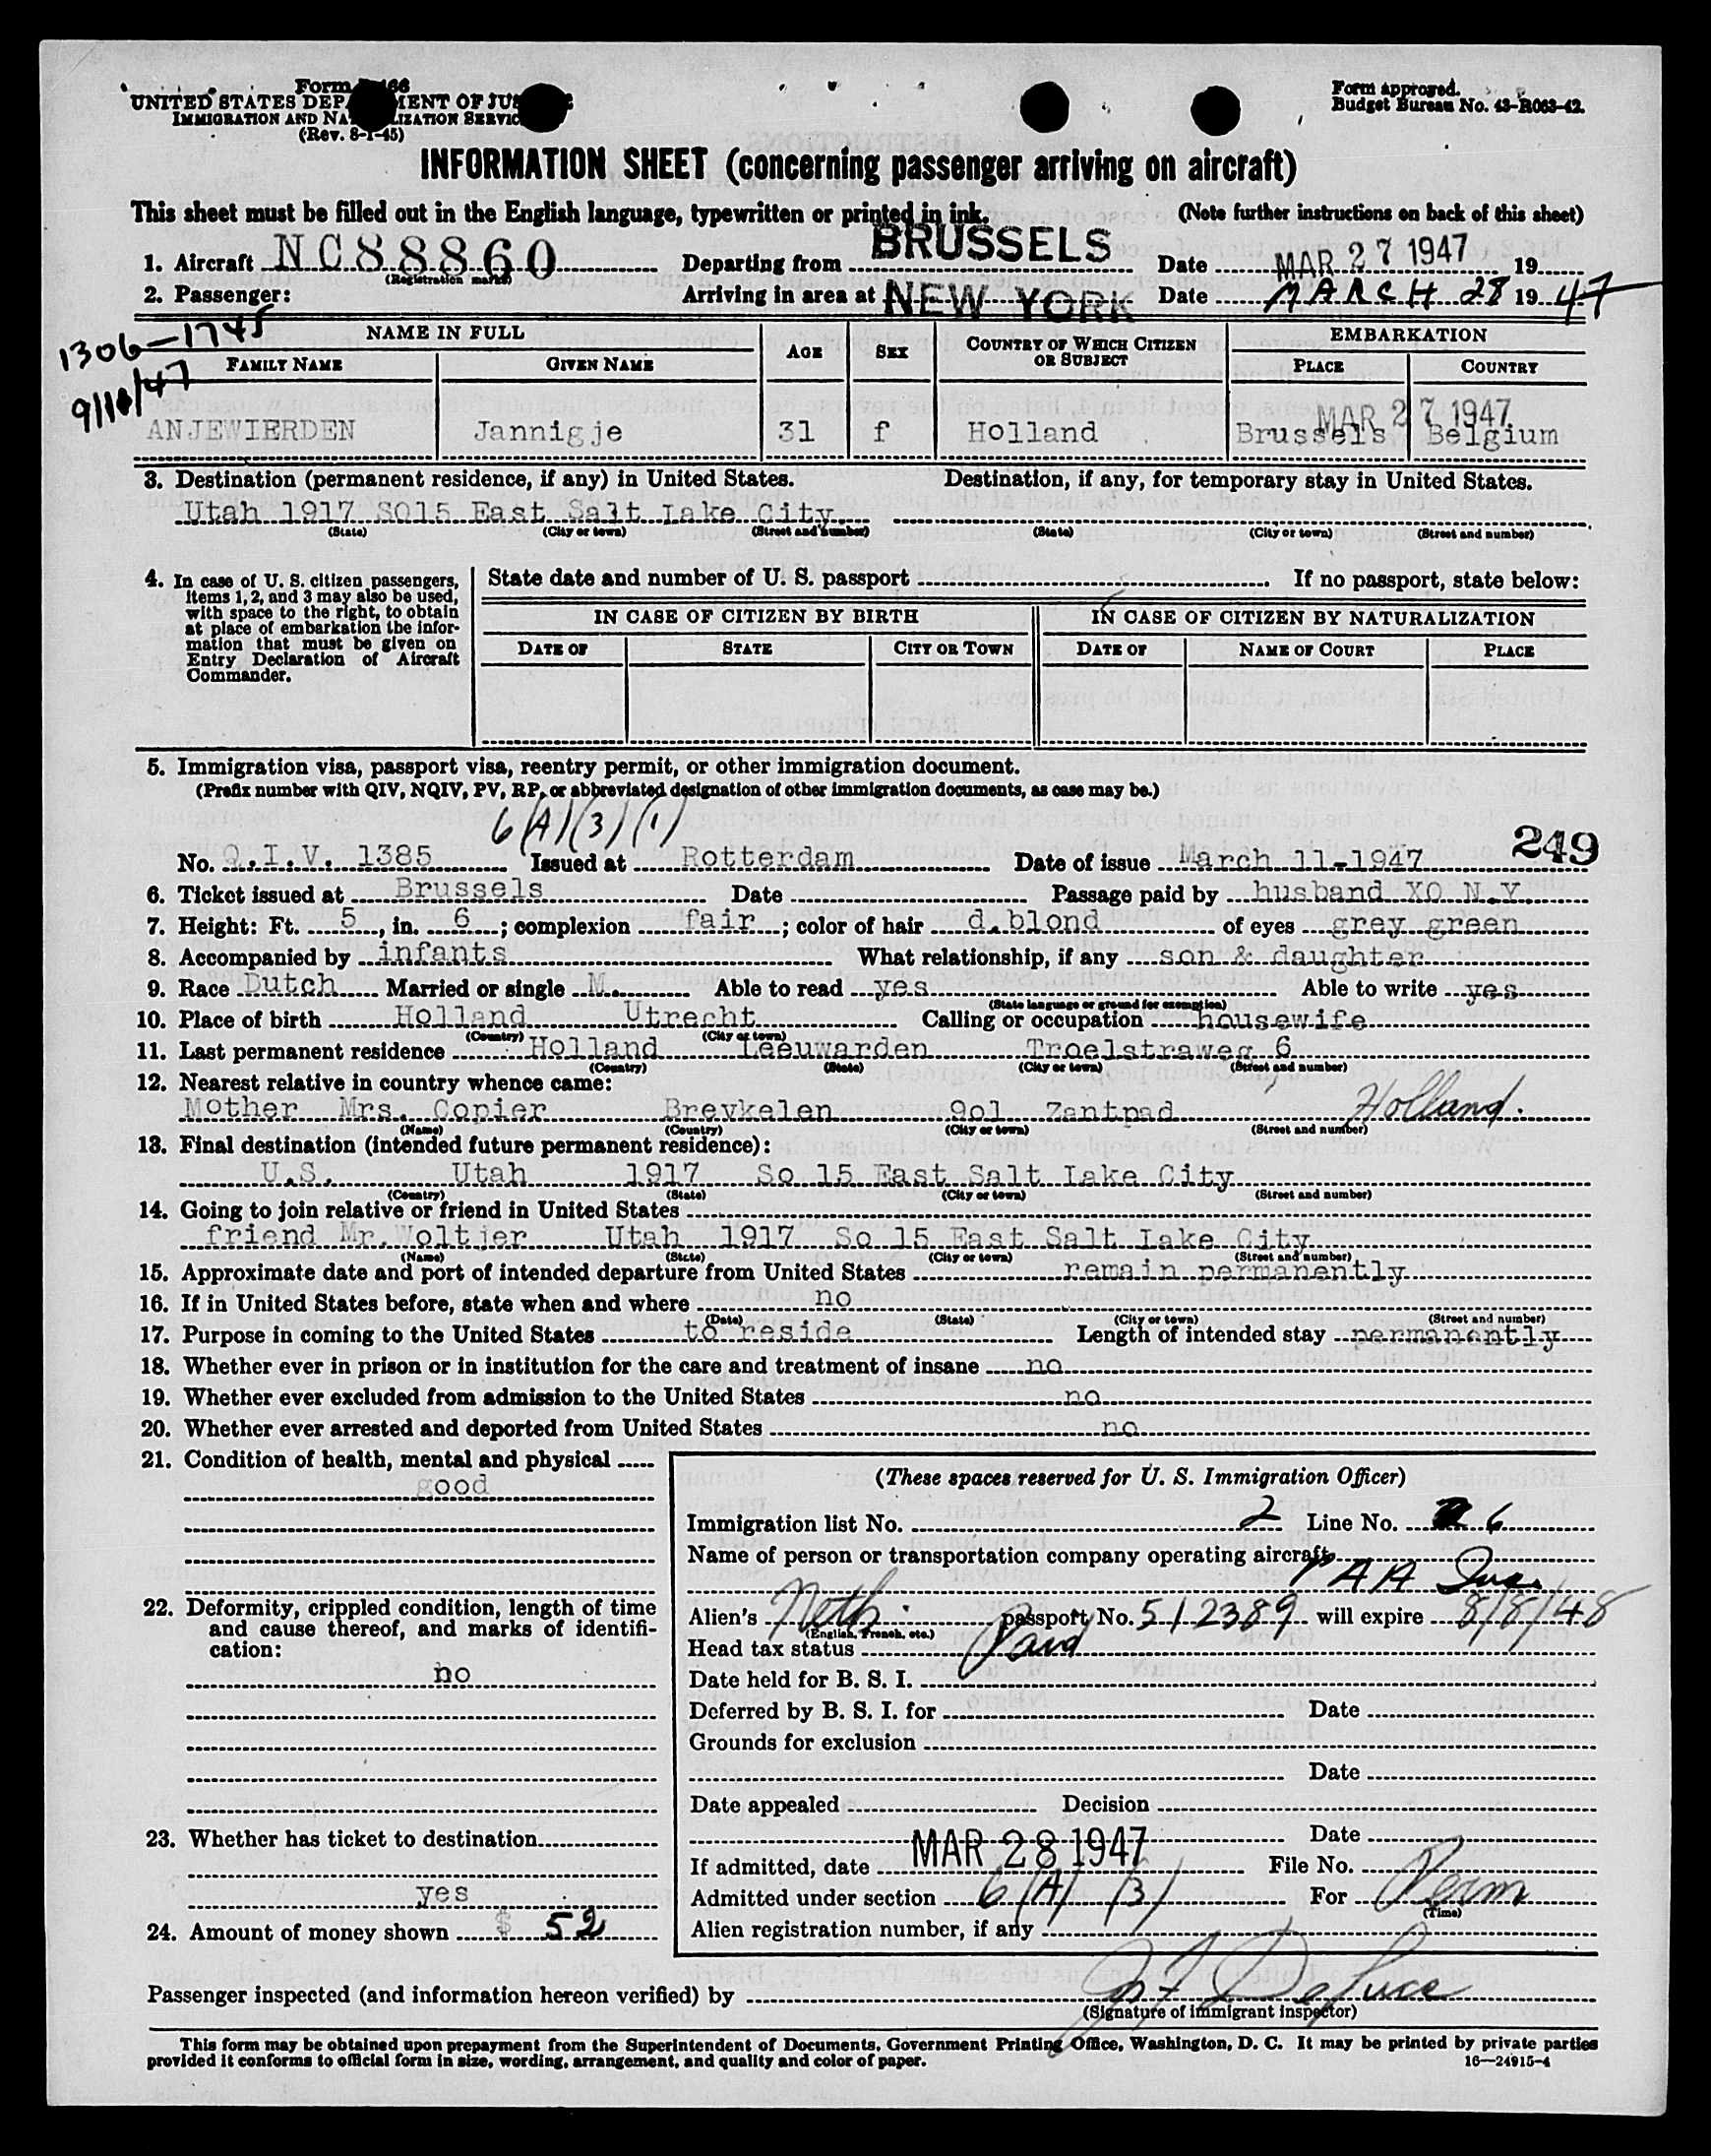 Form 466
UNITED STATES DEPARTMENT OF JUSTICE
IMMIGRATION AND NATURALIZATION SERVICE
(Rev. 8-1-45)
Form approved.
Budget Bureau No. 43-R063-42.
INFORMATION SHEET (concerning passenger arriving on aircraft)
This sheet must be filled out in the English language, typewritten or printed in ink. (Note further instructions on back of this sheet)
1. Aircraft NC88860 (Registration marks) Departing from BRUSSELS Date MAR 27 1947 19
2. Passenger: Arriving in area at NEW YORK Date MARCH 28 1947
1306-1745
9/10/47
NAME IN FULL AGE SEX COUNTRY OF WHICH CITIZEN OR SUBJECT EMBARKATION
FAMILY NAME GIVEN NAME PLACE COUNTRY
MAR 27 1947
ANJEWIERDEN Jannigje 31 f Holland Brussels Belgium
3. Destination (permanent residence, if any) in United States. Destination, if any, for temporary stay in United States.
Utah 1917 SO15 East Salt Lake City
(State) (City or town) (Street and number) (State) (City or town) (Street and number)
4. In case of U. S. citizen passengers, items 1, 2, and 3 may also be used, with space to the right, to obtain at place of embarkation the information that must be given on Entry Declaration of Aircraft Commander.
State date and number of U. S. passport If no passport, state below:
IN CASE OF CITIZEN BY BIRTH IN CASE OF CITIZEN BY NATURALIZATION
DATE OF STATE CITY OR TOWN DATE OF NAME OF COURT PLACE
5. Immigration visa, passport visa, reentry permit, or other immigration document.
(Prefix number with QIV, NQIV, PV, RP, or abbreviated designation of other immigration documents, as case may be.)
6(A)(3)(1)
249
No. Q.I.V. 1385 Issued at Rotterdam Date of issue March 11-1947
6. Ticket issued at Brussels Date Passage paid by husband XO N.Y.
7. Height: Ft. 5, in. 6; complexion fair; color of hair d.blond of eyes grey green
8. Accompanied by infants What relationship, if any son & daughter
9. Race Dutch Married or single M. Able to read yes Able to write yes
(State language or ground for exemption)
10. Place of birth Holland Utrecht Calling or occupation housewife
(Country) (City or town)
11. Last permanent residence Holland Leeuwarden Troelstraweg 6
(Country) (State) (City or town) (Street and number)
12. Nearest relative in country whence came:
Mother Mrs. Copier Brevkelen 901 Zantpad Holland.
(Name) (Country) (City or town) (Street and number)
13. Final destination (intended future permanent residence):
U.S. Utah 1917 So 15 East Salt Lake City
(Country) (State) (City or town) (Street and number)
14. Going to join relative or friend in United States
friend Mr. Woltjer Utah 1917 So 15 East Salt Lake City
(Name) (State) (City or town) (Street and number)
15. Approximate date and port of intended departure from United States remain permanently
16. If in United States before, state when and where no
(Date) (State) (City or town) (Street and number)
17. Purpose in coming to the United States to reside Length of intended stay permanently
18. Whether ever in prison or in institution for the care and treatment of insane no
19. Whether ever excluded from admission to the United States no
20. Whether ever arrested and deported from United States no
21. Condition of health, mental and physical
good
22. Deformity, crippled condition, length of time and cause thereof, and marks of identification:
no
23. Whether has ticket to destination
yes
24. Amount of money shown $ 52
(These spaces reserved for U. S. Immigration Officer)
Immigration list No. 2 Line No. 6
Name of person or transportation company operating aircraft
PAA Inc.
Alien's Neth. passport No. 512389 will expire 8/8/48
(English, French, etc.)
Head tax status Paid
Date held for B. S. I.
Deferred by B. S. I. for Date
Grounds for exclusion
Date
Date appealed Decision
Date
If admitted, date MAR 28 1947 File No.
Admitted under section 6(A)(3) For Perm
(Time)
Alien registration number, if any
Passenger inspected (and information hereon verified) by
(Signature of immigrant inspector)
This form may be obtained upon prepayment from the Superintendent of Documents, Government Printing Office, Washington, D. C. It may be printed by private parties
provided it conforms to official form in size, wording, arrangement, and quality and color of paper. 16—24915-4